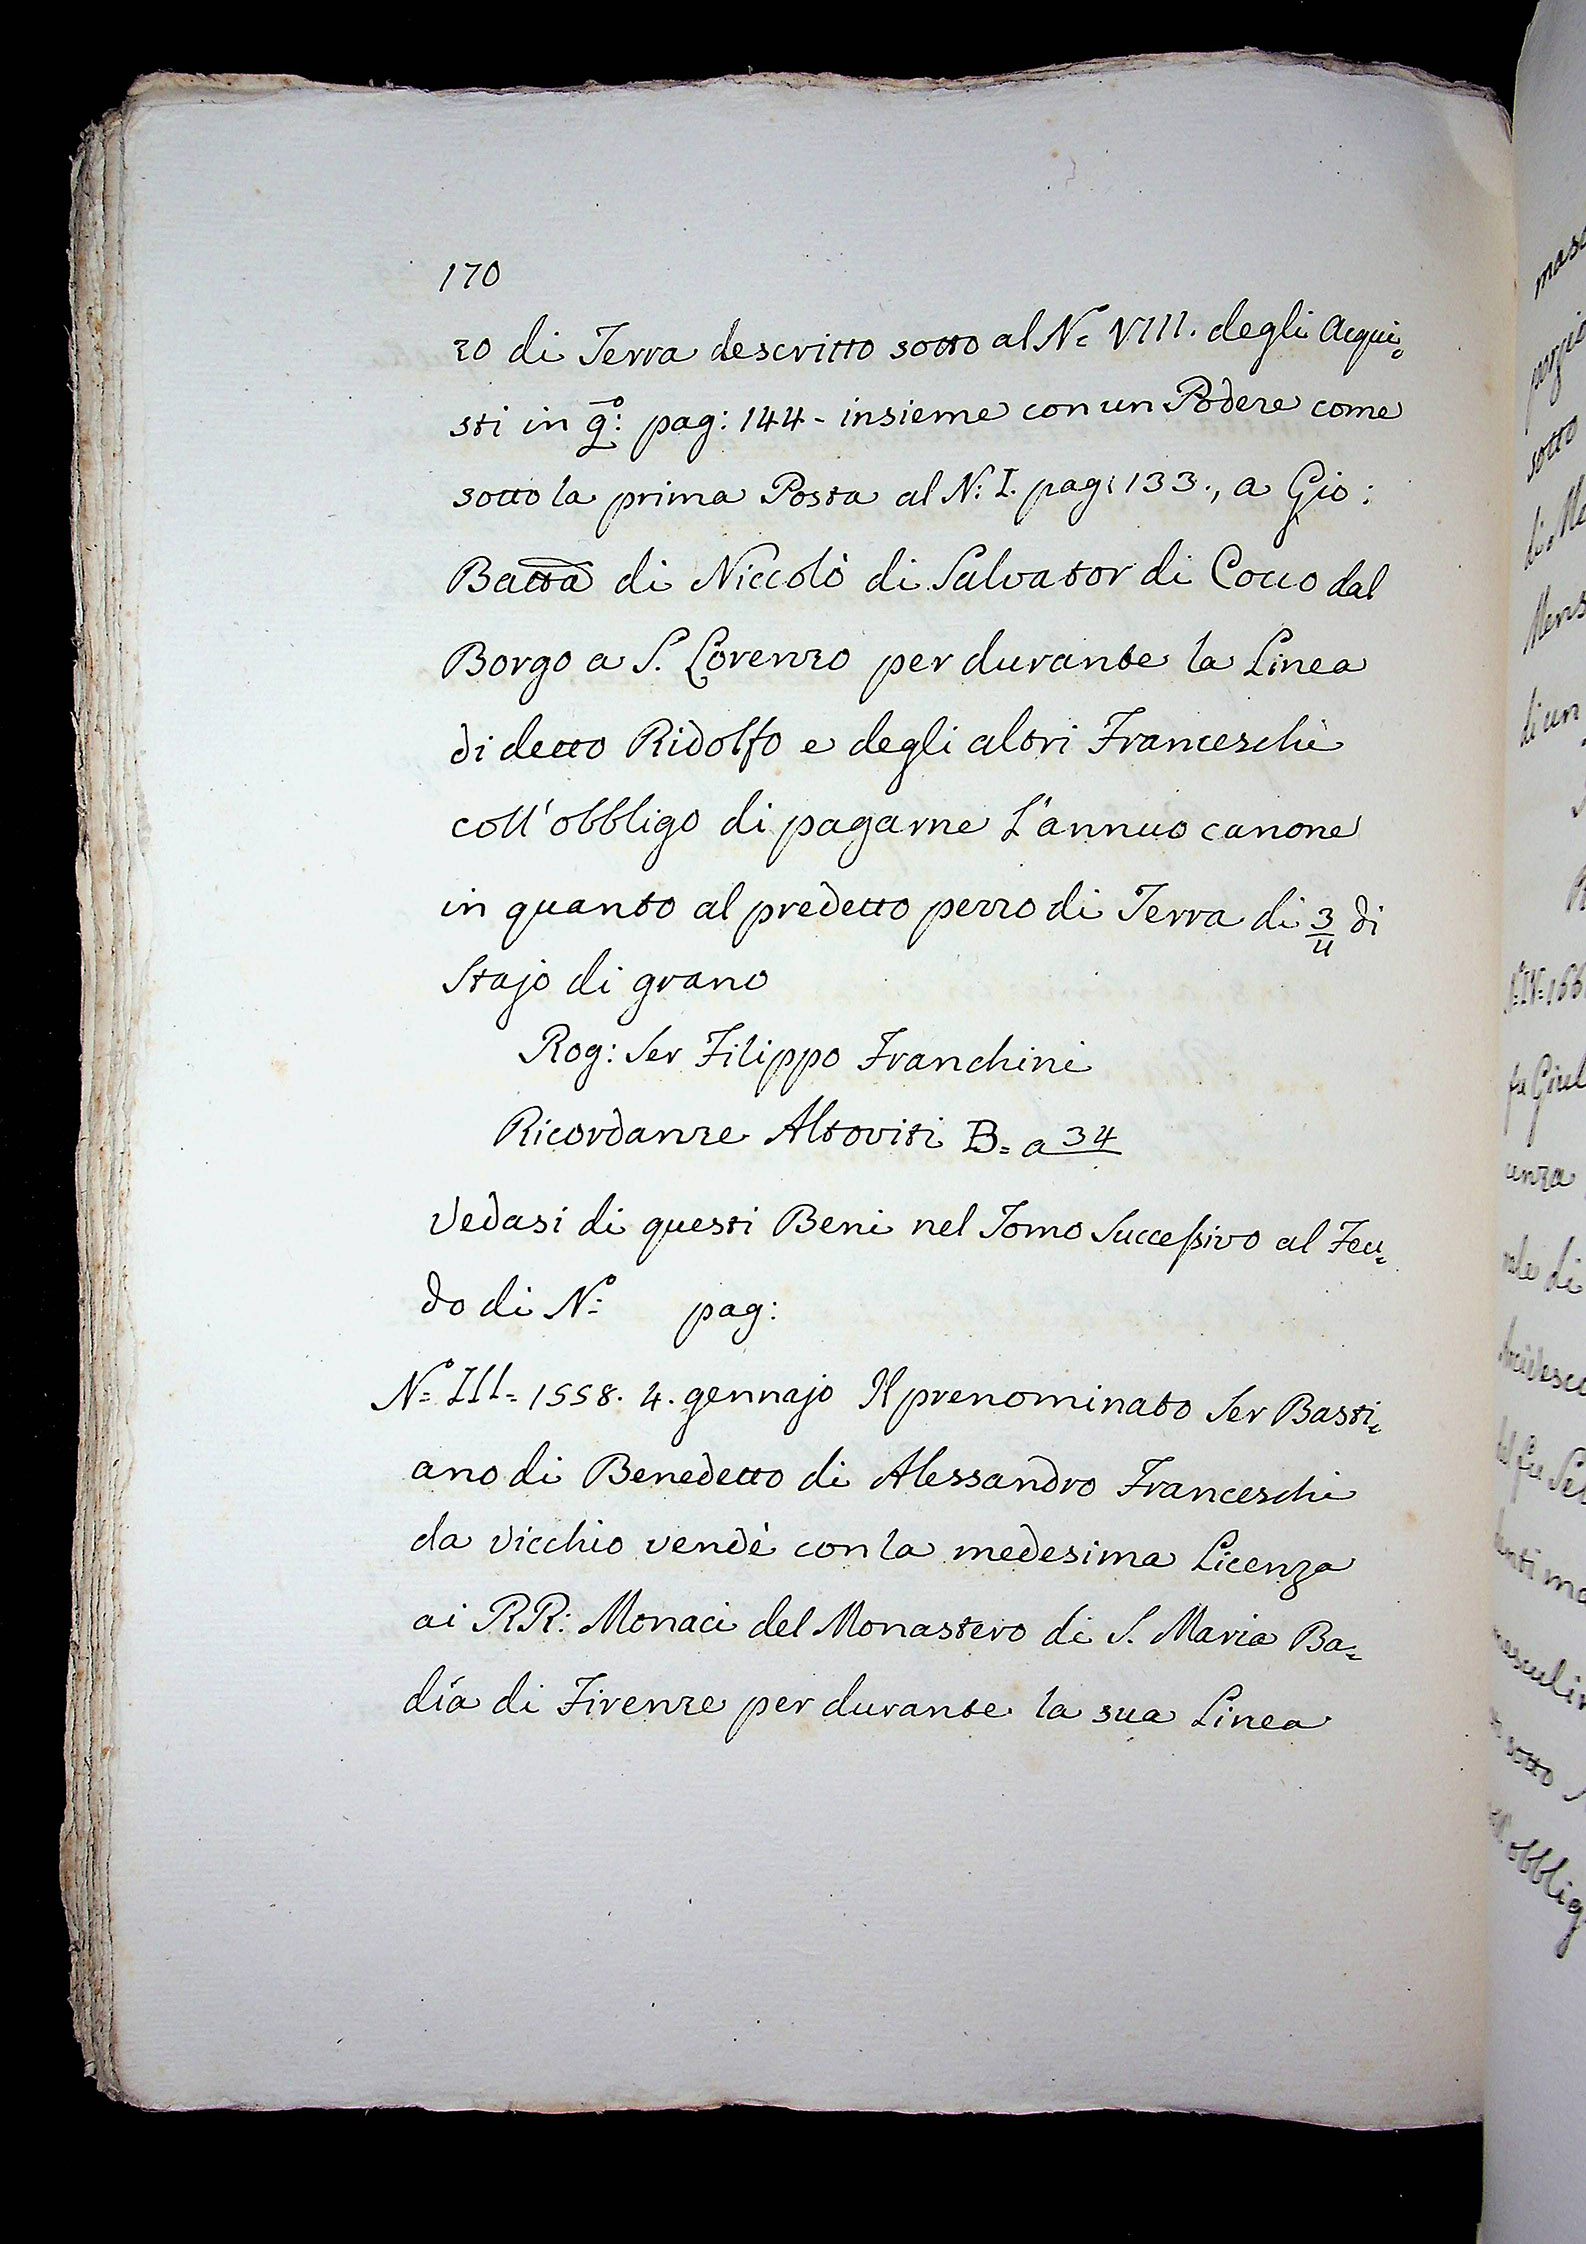 170
zo di Terra descritto sotto al N.º VIII. degli Acqui=
sti in q̄:º pag: 144 - insieme con un Podere come
sotto la prima Posta al N: I. pag: 133., a Gio:
Batta di Niccolò di Salvator di Cocco dal
Borgo a S. Lorenzo per durante la Linea
di detto Ridolfo e degli altri Franceschi
coll'obbligo di pagarne L'annuo canone
in quanto al predetto pezzo di Terra di 3/4 di
Stajo di grano
Rog: Ser Filippo Franchini
Ricordanze Altoviti B= a 34
Vedasi di questi Beni nel Tomo Successivo al Feu=
do di Nº: pag:
Nº= III= 1558. 4. gennajo Il prenominato Ser Basti=
ano di Benedetto di Alessandro Franceschi
da Vicchio vendè con la medesima Licenza
ai RR: Monaci del Monastero di S. Maria Ba=
día di Firenze per durante la sua Linea
sotto
di un
fu Giul
cenza
sotto
obblig